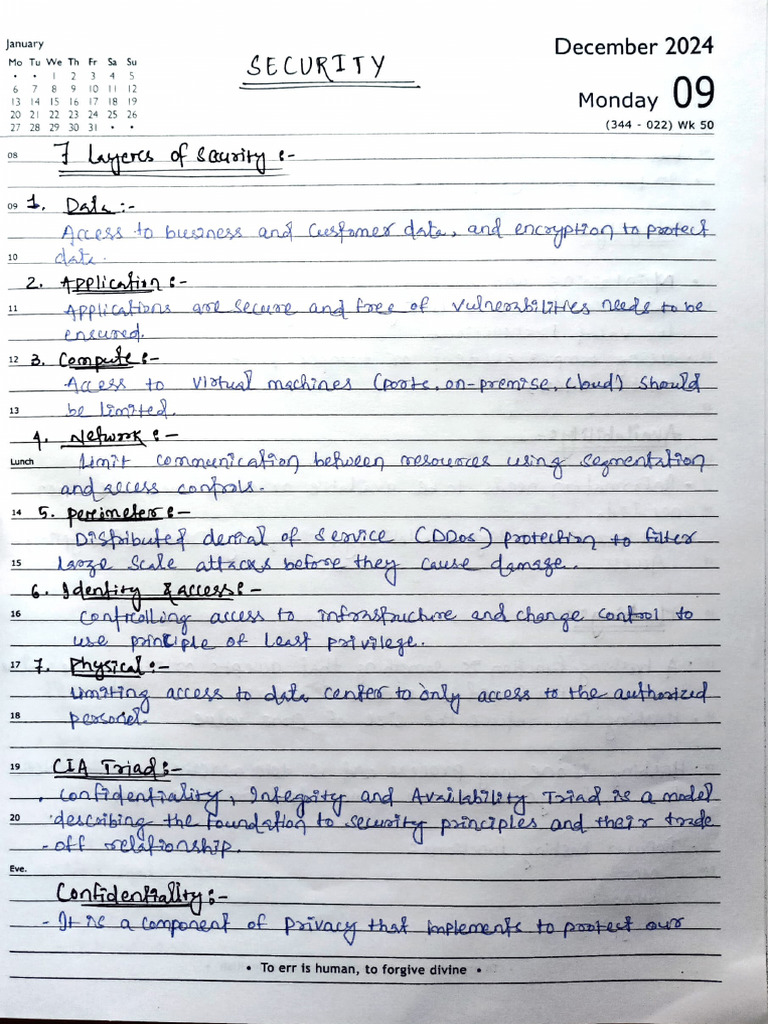 January
Mo Tu We Th Fr Sa Su
• • 1 2 3 4 5
6 7 8 9 10 11 12
13 14 15 16 17 18 19
20 21 22 23 24 25 26
27 28 29 30 31 • •
SECURITY
December 2024
Monday 09
(344 - 022) Wk 50
08 7 Layeres of security :-
09 1. Data :-
Access to business and customer data, and encryption to protect
10 data.
2. Application :-
11 Applications are secure and free of vulnerabilities needs to be
ensured.
12 3. Compute :-
Access to virtual machines (ports, on-premise, cloud) should
13 be limited.
4. Network :-
Lunch Limit communication between resources using segmentation
and access controls.
14 5. perimeter :-
Distributed denial of service (DDos) protection to filter
15 large scale attacks before they cause damage.
6. Identity & access :-
16 controlling access to infrastructure and change control to
use principle of least privilege.
17 7. Physical :-
Limiting access to data center to only access to the authorized
18 personel.
19 CIA Triad :-
. Confidentiality, Integrity and Availability Triad is a model
20 describing the foundation to security principles and their trade
- off relationship.
Eve.
Confidentiality :-
- It is a component of privacy that implements to protect our
• To err is human, to forgive divine •